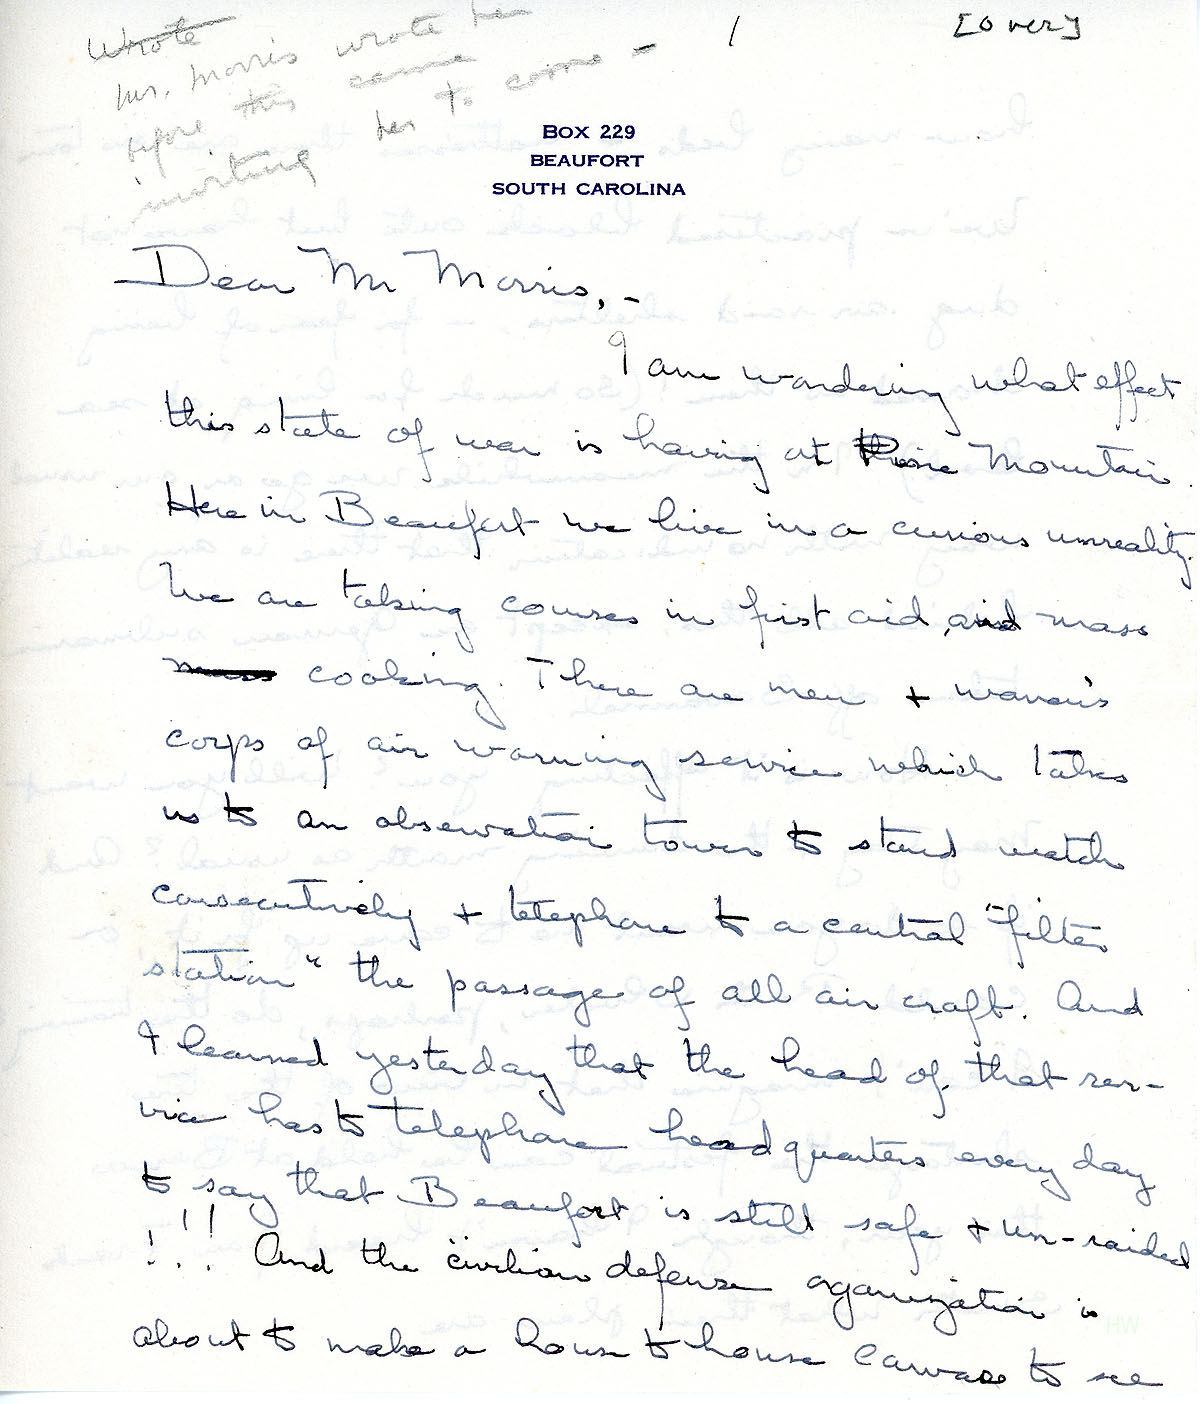 1
[Over]
Wrote
Mr. Morris wrote her
before this came
inviting her to come -
BOX 229
BEAUFORT
SOUTH CAROLINA
Dear Mr Morris, -
I am wondering what effect
this state of war is having at Pine Mountain.
Here in Beaufort we live in a curious unreality.
We are taking courses in first aid, and mass
cooking. There are men + women's
corps of air warning service which takes
us to an observation tower to stand watch
consecutively + telephone to a central "filter
station" the passage of all air craft. And
I learned yesterday that the head of that ser-
vice has to telephone headquarters every day
to say that Beaufort is still safe + un-raided
!!!! And the civilian defense organization is
about to make a house to house canvass to see
HW